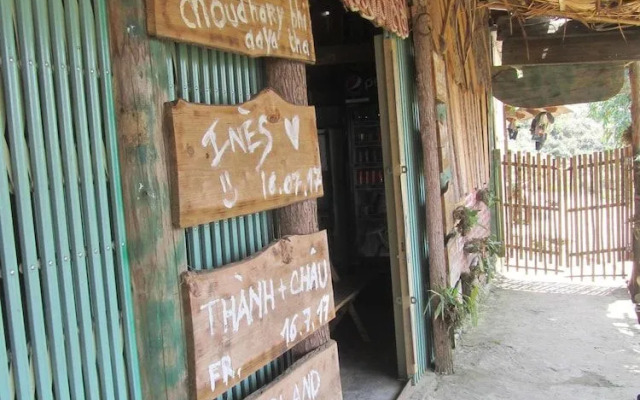 choudhary bhi
aaya tha
INÈS ♥
16.07.17
THÀNH + CHÂU
16.7.17
FR.
LAND